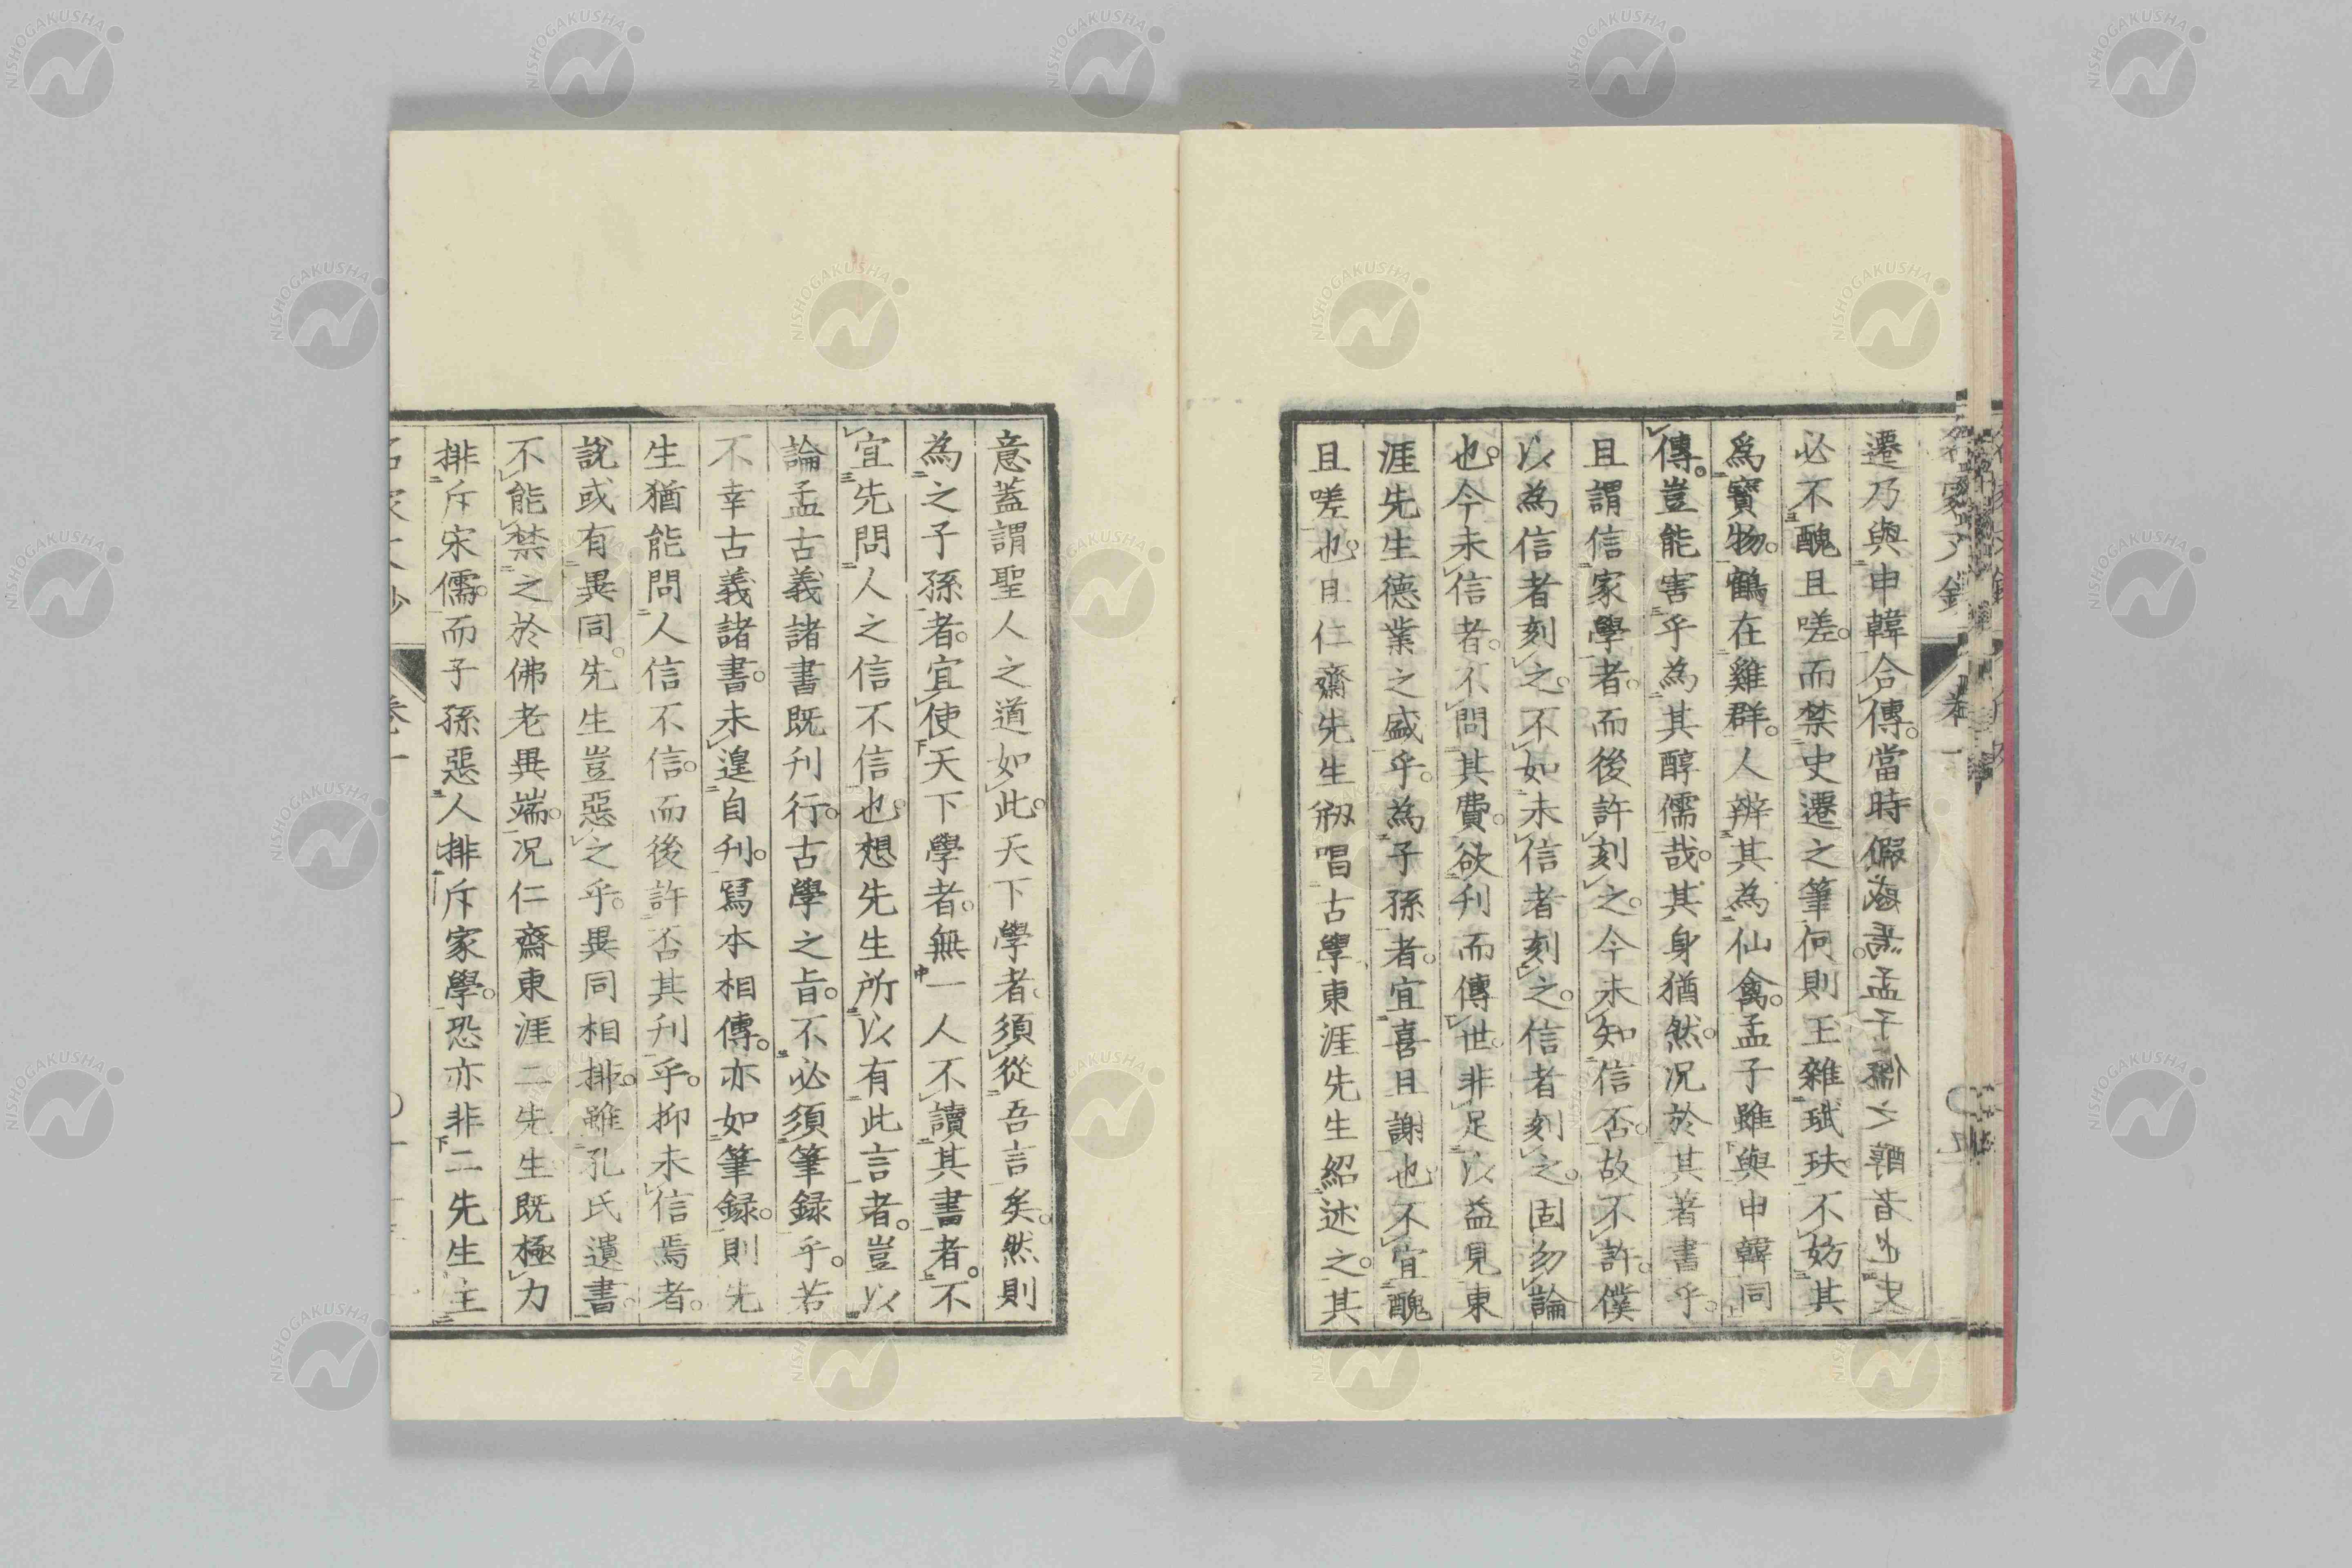 遷乃與申韓合傳。當時假
必不醜且嗟。而禁史遷之筆何則玉雜珷玞不妨其
爲寳物。鶴在雞群。人辨其為仙禽。孟子雖與申韓同
傳。豈能害乎為其醇儒哉。其身猶然。况於其著書乎。
且謂信家學者。而後許刻之。今未知信否。故不許。僕
以為信者刻之。不如未信者刻之。信者刻之。固勿論
也。今未信者。不問其費。欲刊而傳世。非足以益見東
涯先生德業之盛乎。為子孫者。宜喜且謝也。不宜醜
且嗟也。且仁齋先生刱唱古學東涯先生紹述之。其
意蓋謂聖人之道如此。天下學者。須從吾言矣。然則
為之子孫者。宜使天下學者。無一人不讀其書者。不
宜先問人之信不信也。想先生所以有此言者。豈以
論孟古義諸書既刊行。古學之旨。不必須筆録乎。若
不幸古義諸書。未遑自刊。寫本相傳。亦如筆録。則先
生猶能問人信不信。而後許否其刊乎。抑未信焉者。
說或有異同。先生豈惡之乎。異同相排。雖孔氏遺書。
不能禁之於佛老異端。况仁齋東涯二先生既極力
排斥宋儒。而子孫惡人排斥家學。恐亦非二先生主